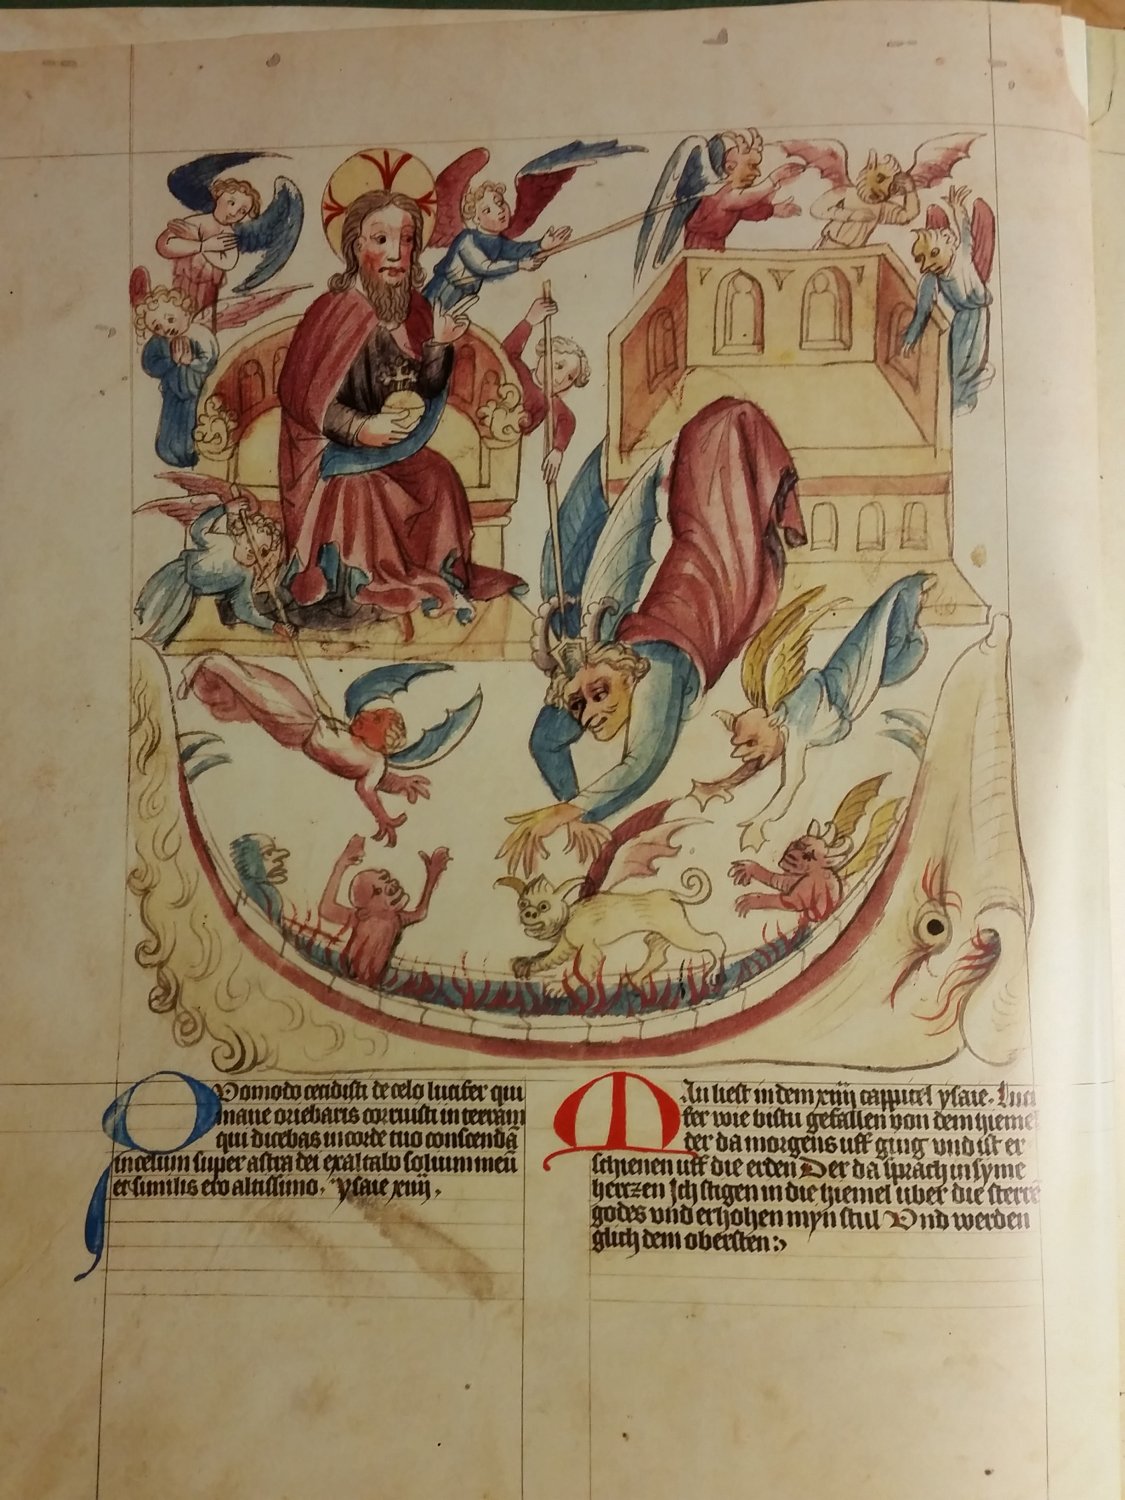 Quomodo cecidisti de celo lucifer qui
mane oriebaris corruisti in terram
qui dicebas in corde tuo conscendā
in celum super astra dei exaltabo solium meū
et similis ero altissimo. Ysaie xiiij.
Man liest in dem xiiij cappitel ysaie. Luci
fer wie bistu gefallen von dem hiemel
der da morgens uff ging vnd ist er
schienen uff die erden Der da sprach in syme
hertzen Ich stigen in die hiemel uber die sterre
godes vnd erhohen myn stul Vnd werden
glich dem obersten